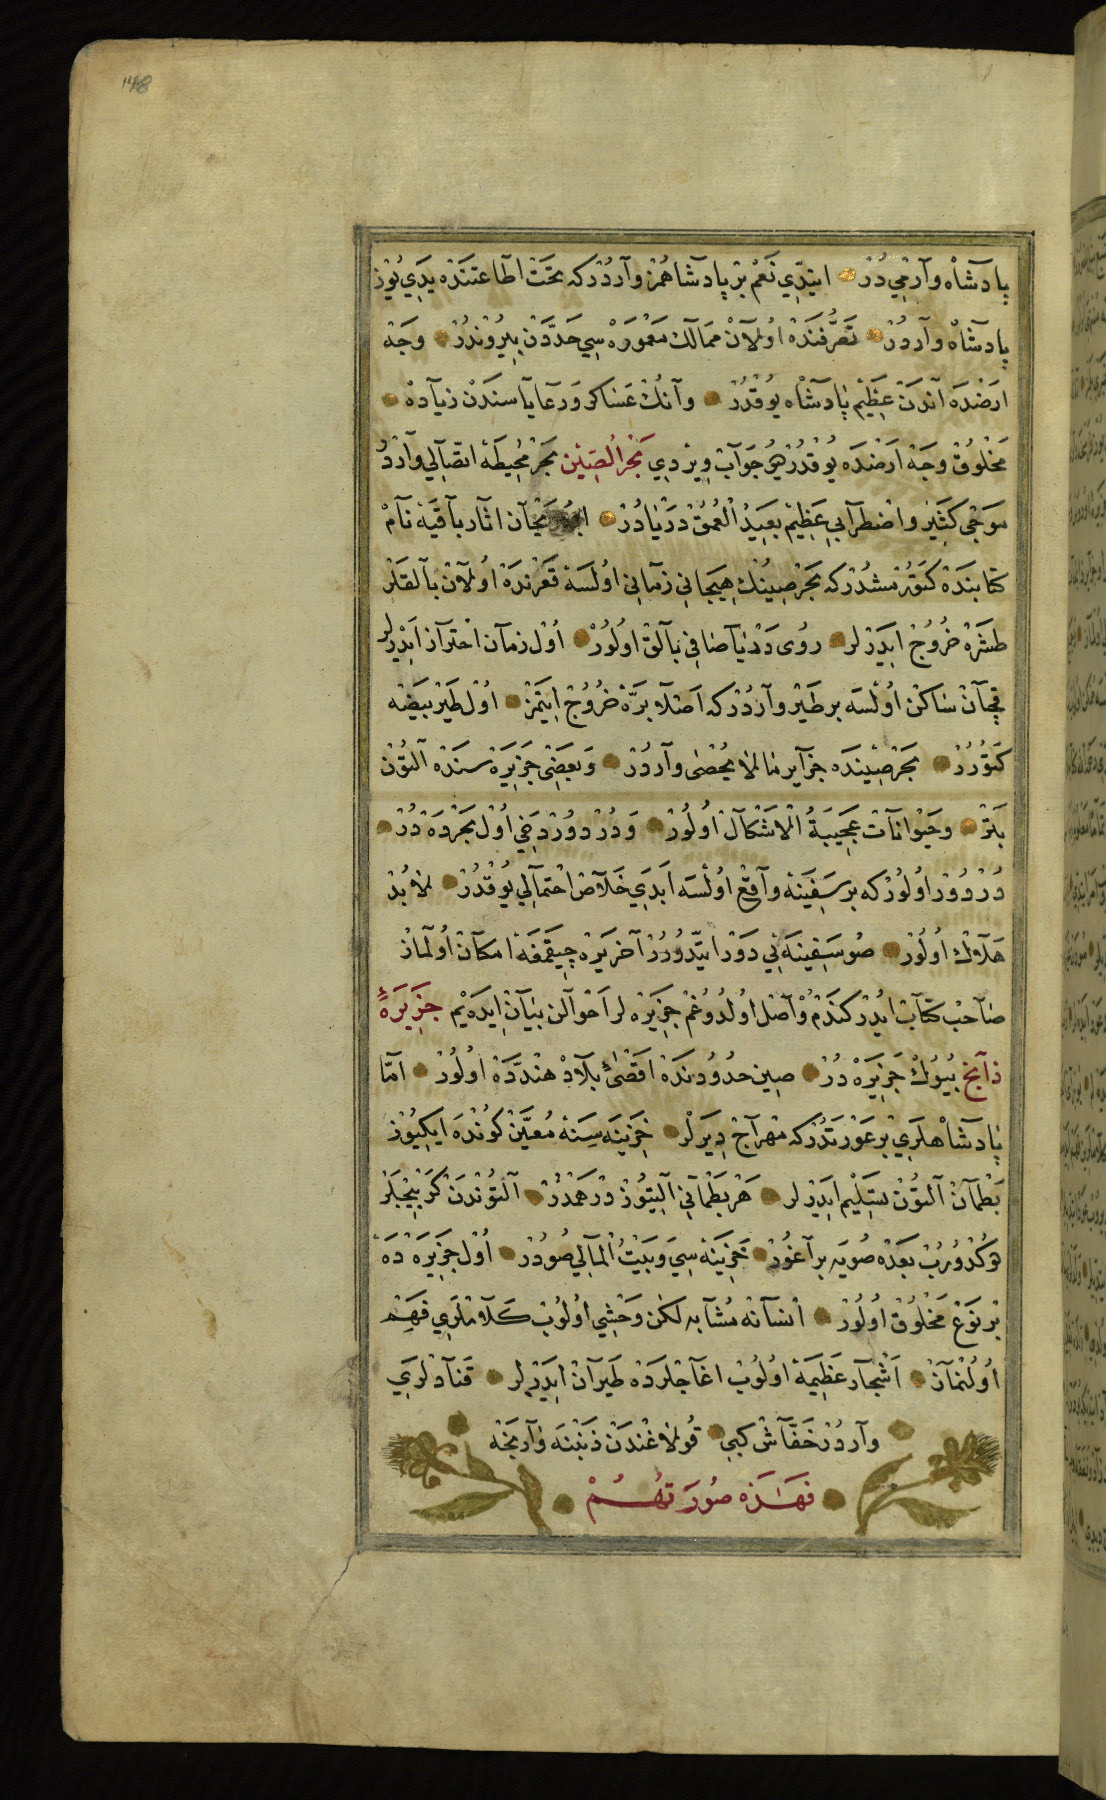 148
پادشاه وارمی در ایتدی نعم بر پادشاهمز واردر که تحت اطاعتنده یدی یوز
پادشاه واردر تصرفنده اولان ممالك معموره سی حددن بیروندر وجه
ارضده اندن عظیم پادشاه یوقدر وانك عساكر ورعایاسندن زیاده
مخلوق وجه ارضده یوقدر دیو جواب ویردی بحر الصین بحر محیطه اتصالی واردر
موجی كثیر واضطرابی عظیم بعید العمق دریادر ریحان اثار باقیه نام
كتابنده كتورمشدر كه بحر صینك هیجانی زمانی اولسه قعرنده اولان بالقلر
طشره خروج ایدرلر روی دریا صافی بالق اولور اول زمان احتراز ایدرلر
قچان ساكن اولسه بر طیر واردر كه اصلا بره خروج ایتمز اول طیر بیضه
كتورر بحر صینده جزایر ما لا یحصی واردر وبعضی جزیره سنده التون
بتر وحیوانات عجیبة الاشكال اولور ودر دور دخی اول بحرده در
در دور اولور كه بر سفینه واقع اولسه ابدی خلاص احتمالی یوقدر لا بد
هلاك اولور صو سفینه یی دور ایتدورر اخر یره چیقمغه امكان اولماز
صاحب كتاب ایدر كندم واصل اولدوغم جزیره لر احوالن بیان ایده یم جزیرهٔ
ذابج بیوك جزیره در صین حدودنده اقصئ بلاد هندده اولور اما
پادشاهلری بر عورتدر كه مهراج دیرلر خزینه سنه معین كونده ایكیوز
بطمان التون تسلیم ایدرلر هر بطمانی التیوز درهمدر التوندن كرپیچلر
دوكدوروب بعده صویه براغور خزینه سی وبیت المالی صودر اول جزیره ده
بر نوع مخلوق اولور انسانه مشابه لكن وحشی اولوب كلاملری فهم
اولنماز اشجار عظیمه اولوب اغاجلرده طیران ایدرلر قنادلری
واردر خفاش كبی قولاغندن ذنبنه وارنجه
فهذه صورتهم